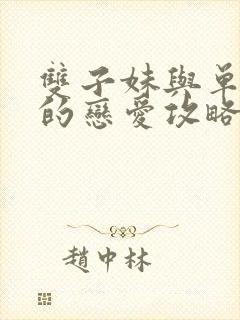 雙子妹與單
的戀愛攻略
趙中林